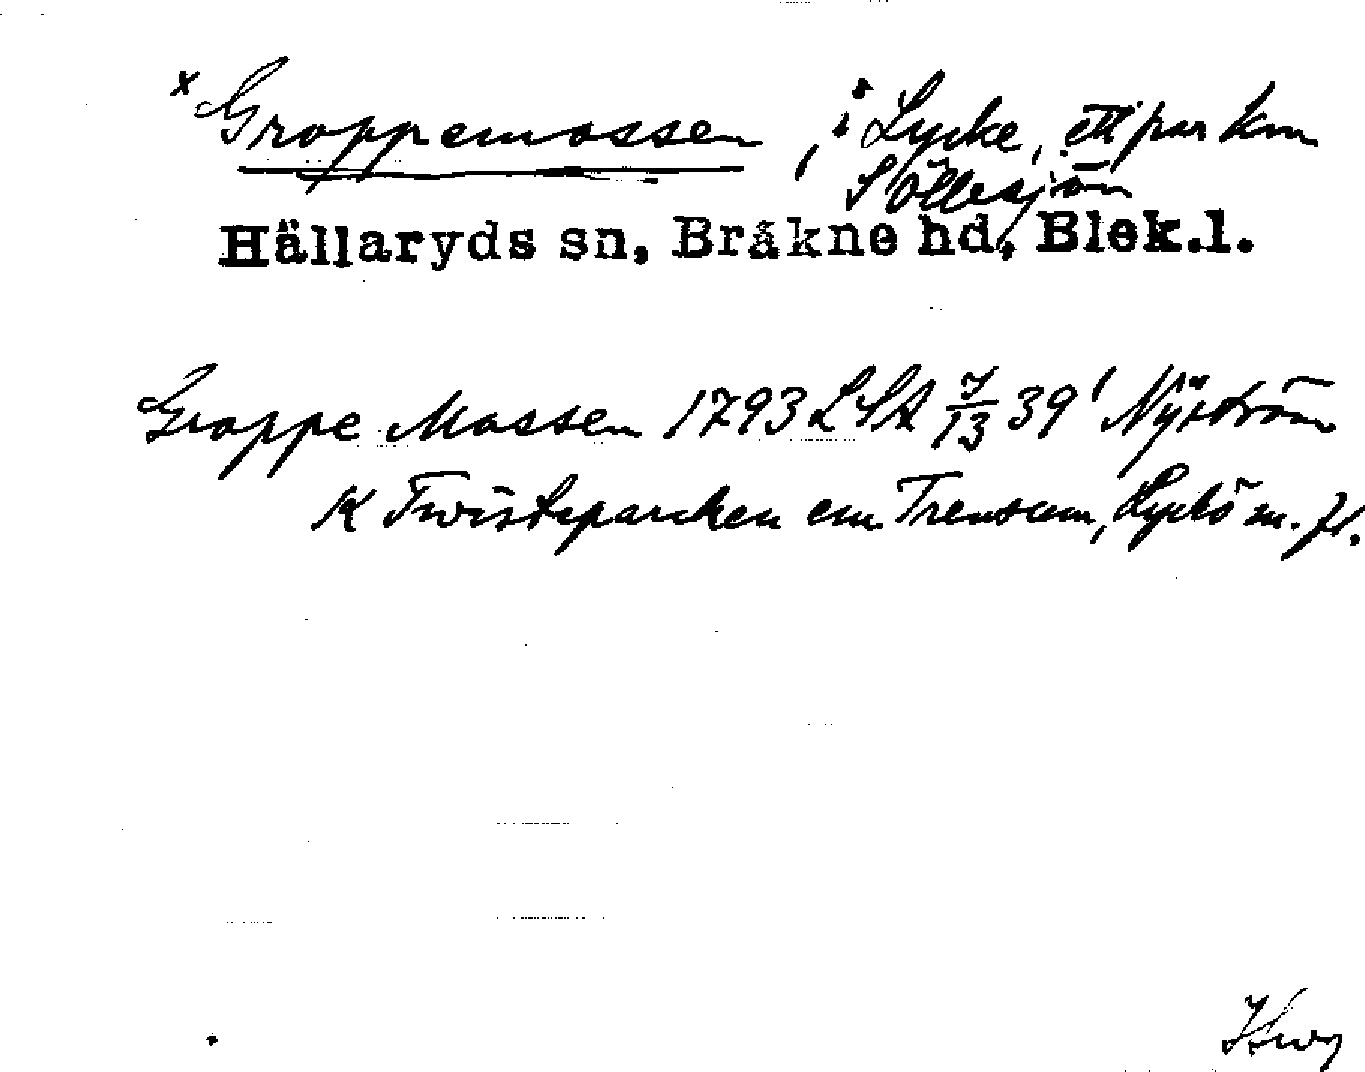 x Groppemossen, i Lycke, ett par km
S Öllesjön
Hällaryds sn, Bråkne hd, Blek.l.
Groppe Mossen 1793 LSA 7/13 39' Nÿström
K Twistsparcken em. Trensum, Lyckö m. fl.